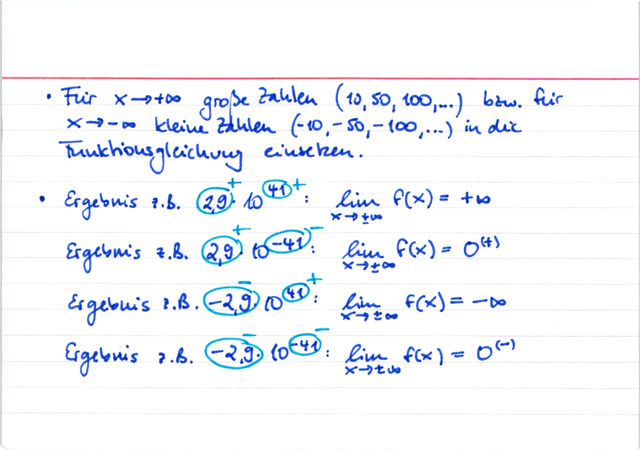 • Für x→+∞ große Zahlen (10, 50, 100,...) bzw. für
x→-∞ kleine Zahlen (-10, -50, -100,...) in die
Funktionsgleichung einsetzen.
• Ergebnis z.B. 2,9⁺· 10⁴¹⁺: lim x→±∞ f(x) = +∞
Ergebnis z.B. 2,9⁺· 10⁻⁴¹⁻: lim x→±∞ f(x) = 0⁽⁺⁾
Ergebnis z.B. -2,9⁻· 10⁴¹⁺: lim x→±∞ f(x) = -∞
Ergebnis z.B. -2,9⁻· 10⁻⁴¹⁻: lim x→±∞ f(x) = 0⁽⁻⁾